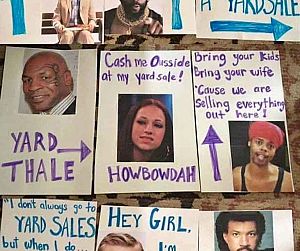 A YARDSALE
YARD
THALE
Cash Me Ousside
at my yard sale!
HOWBOWDAH
Bring your Kids
Bring your wife
'Cause we are
Selling everything
out here!
"I don't always go to
YARD SALES
but when I do...
HEY GIRL,
I'm